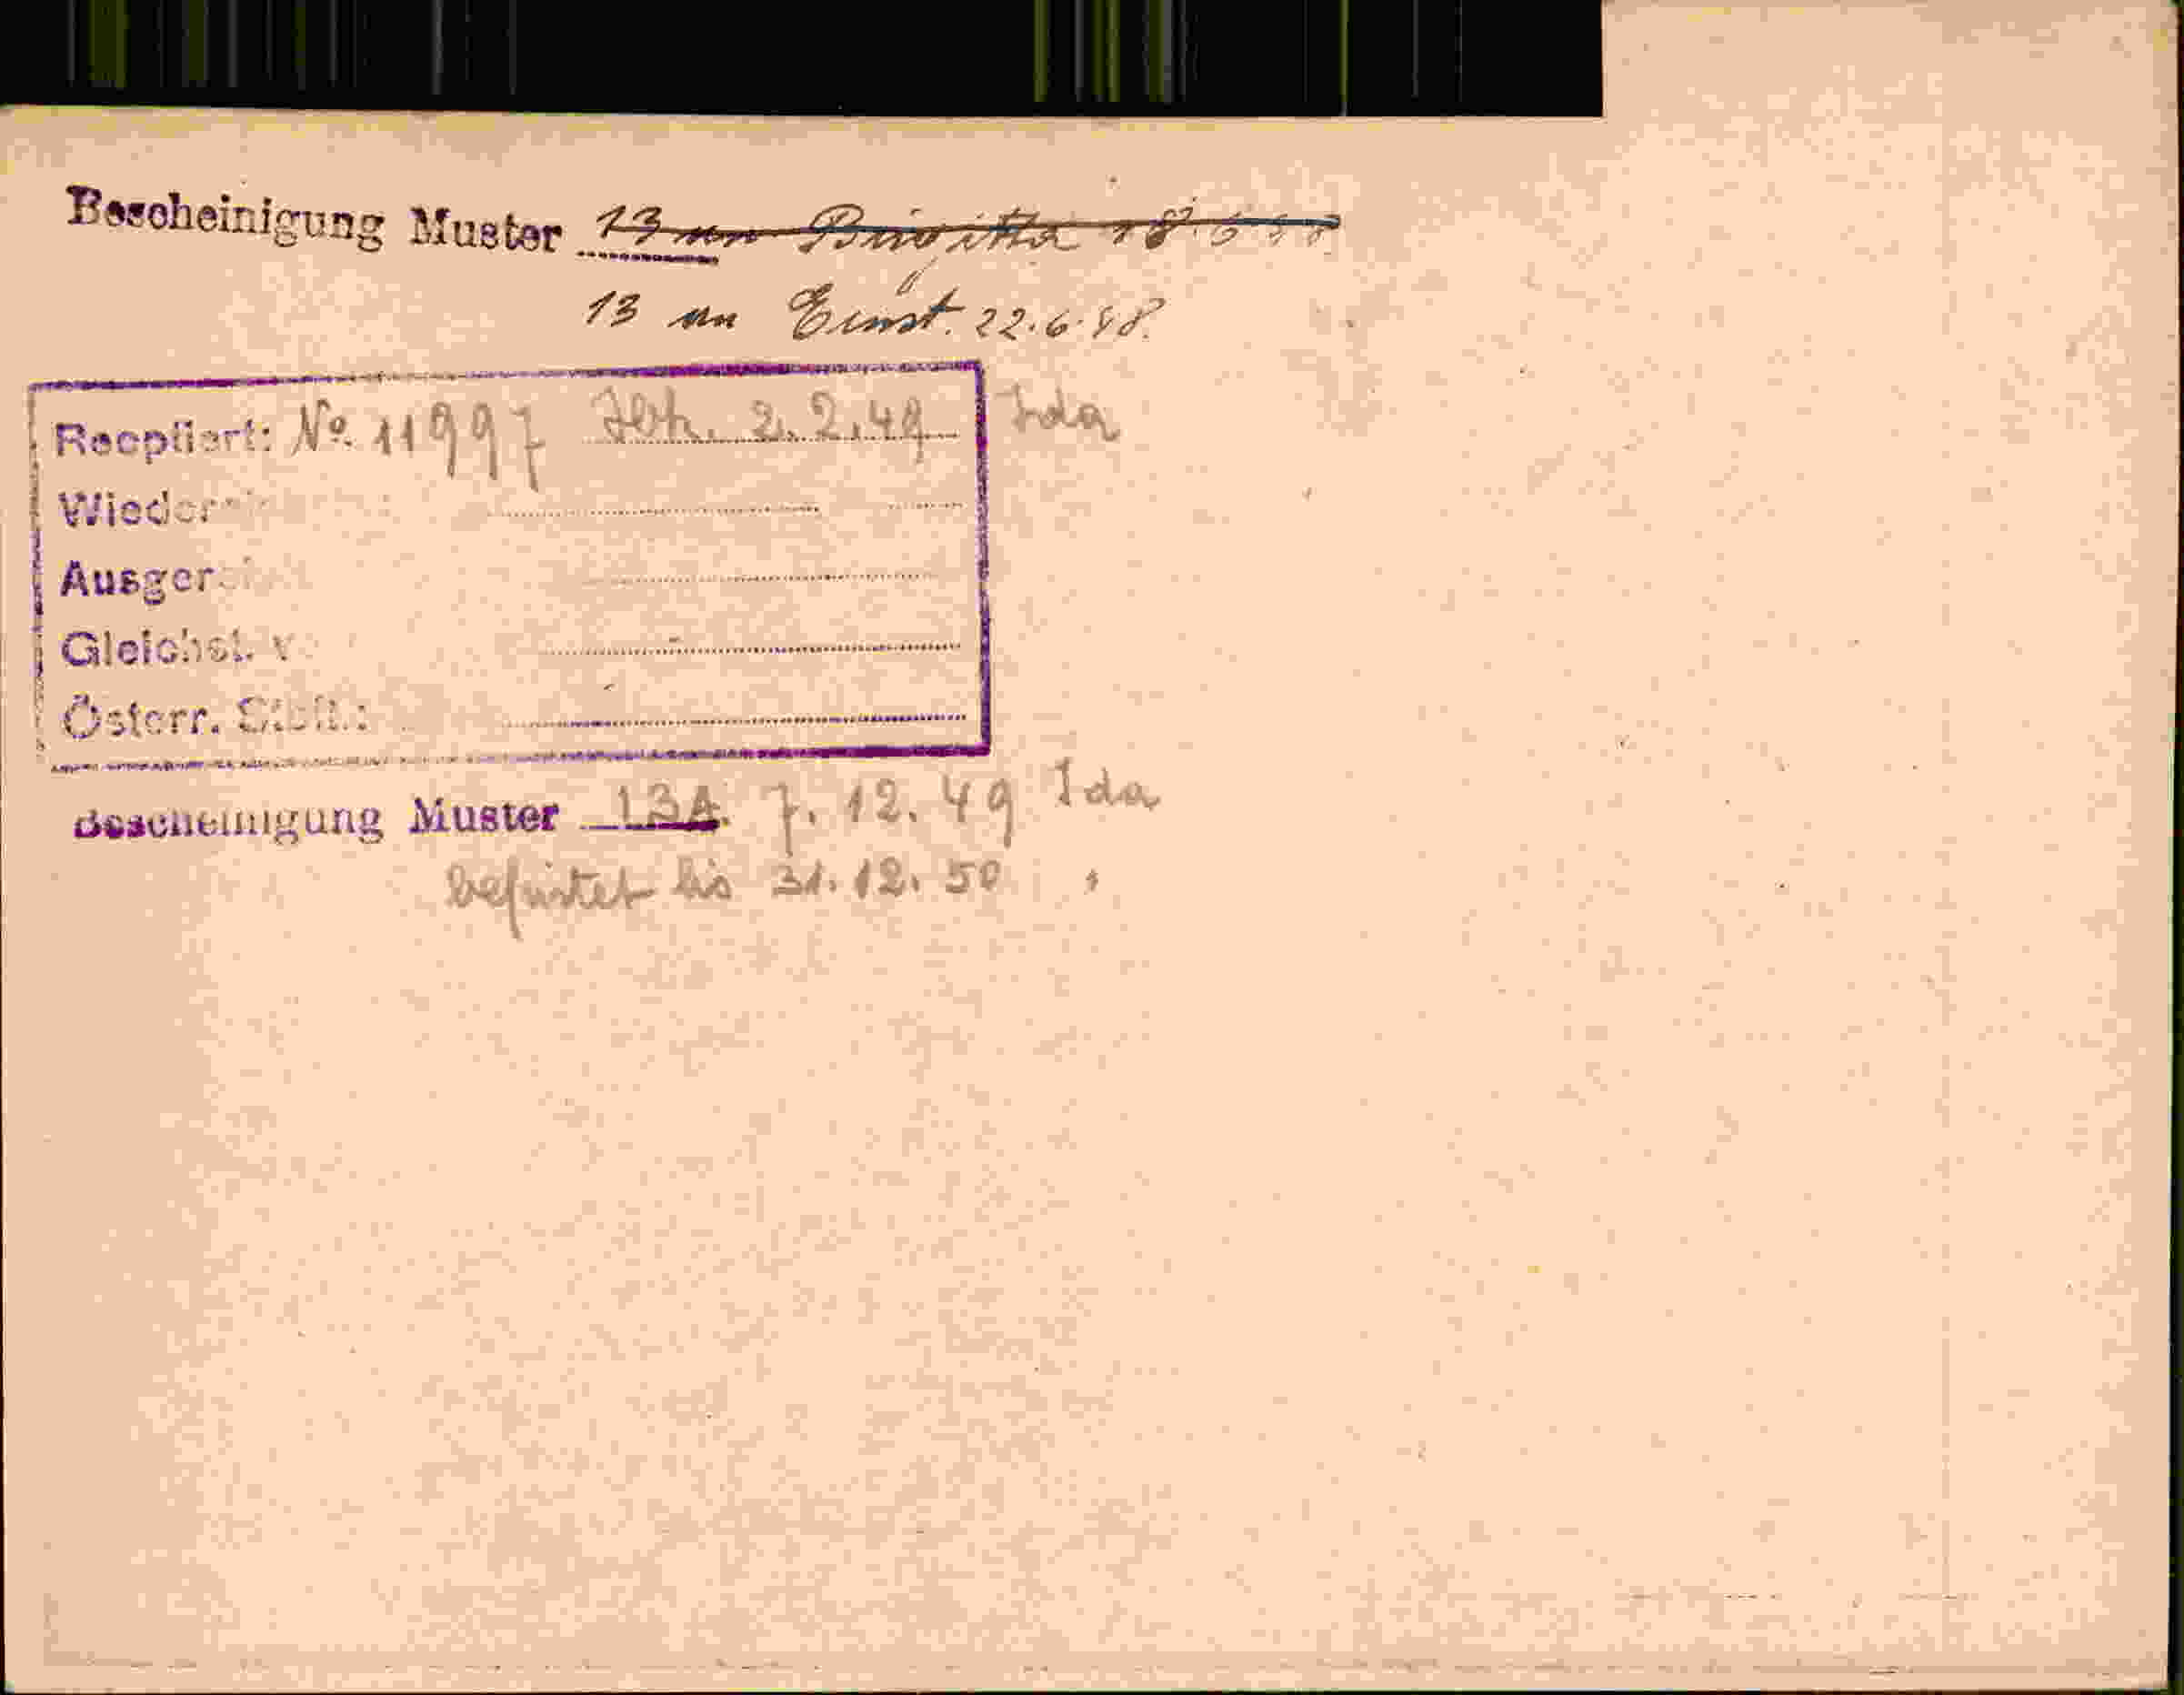 Bescheinigung Muster 13 an Birgitta 18.6.48
13 an Ernst. 22.6.48.
Reoptiert: No. 11997 2.2.49 Ida
Wieder
Ausger
Gleichst. v
Österr. Stbft.:
Bescheinigung Muster 13A. 7.12.49 Ida
befristet bis 31.12.50 "